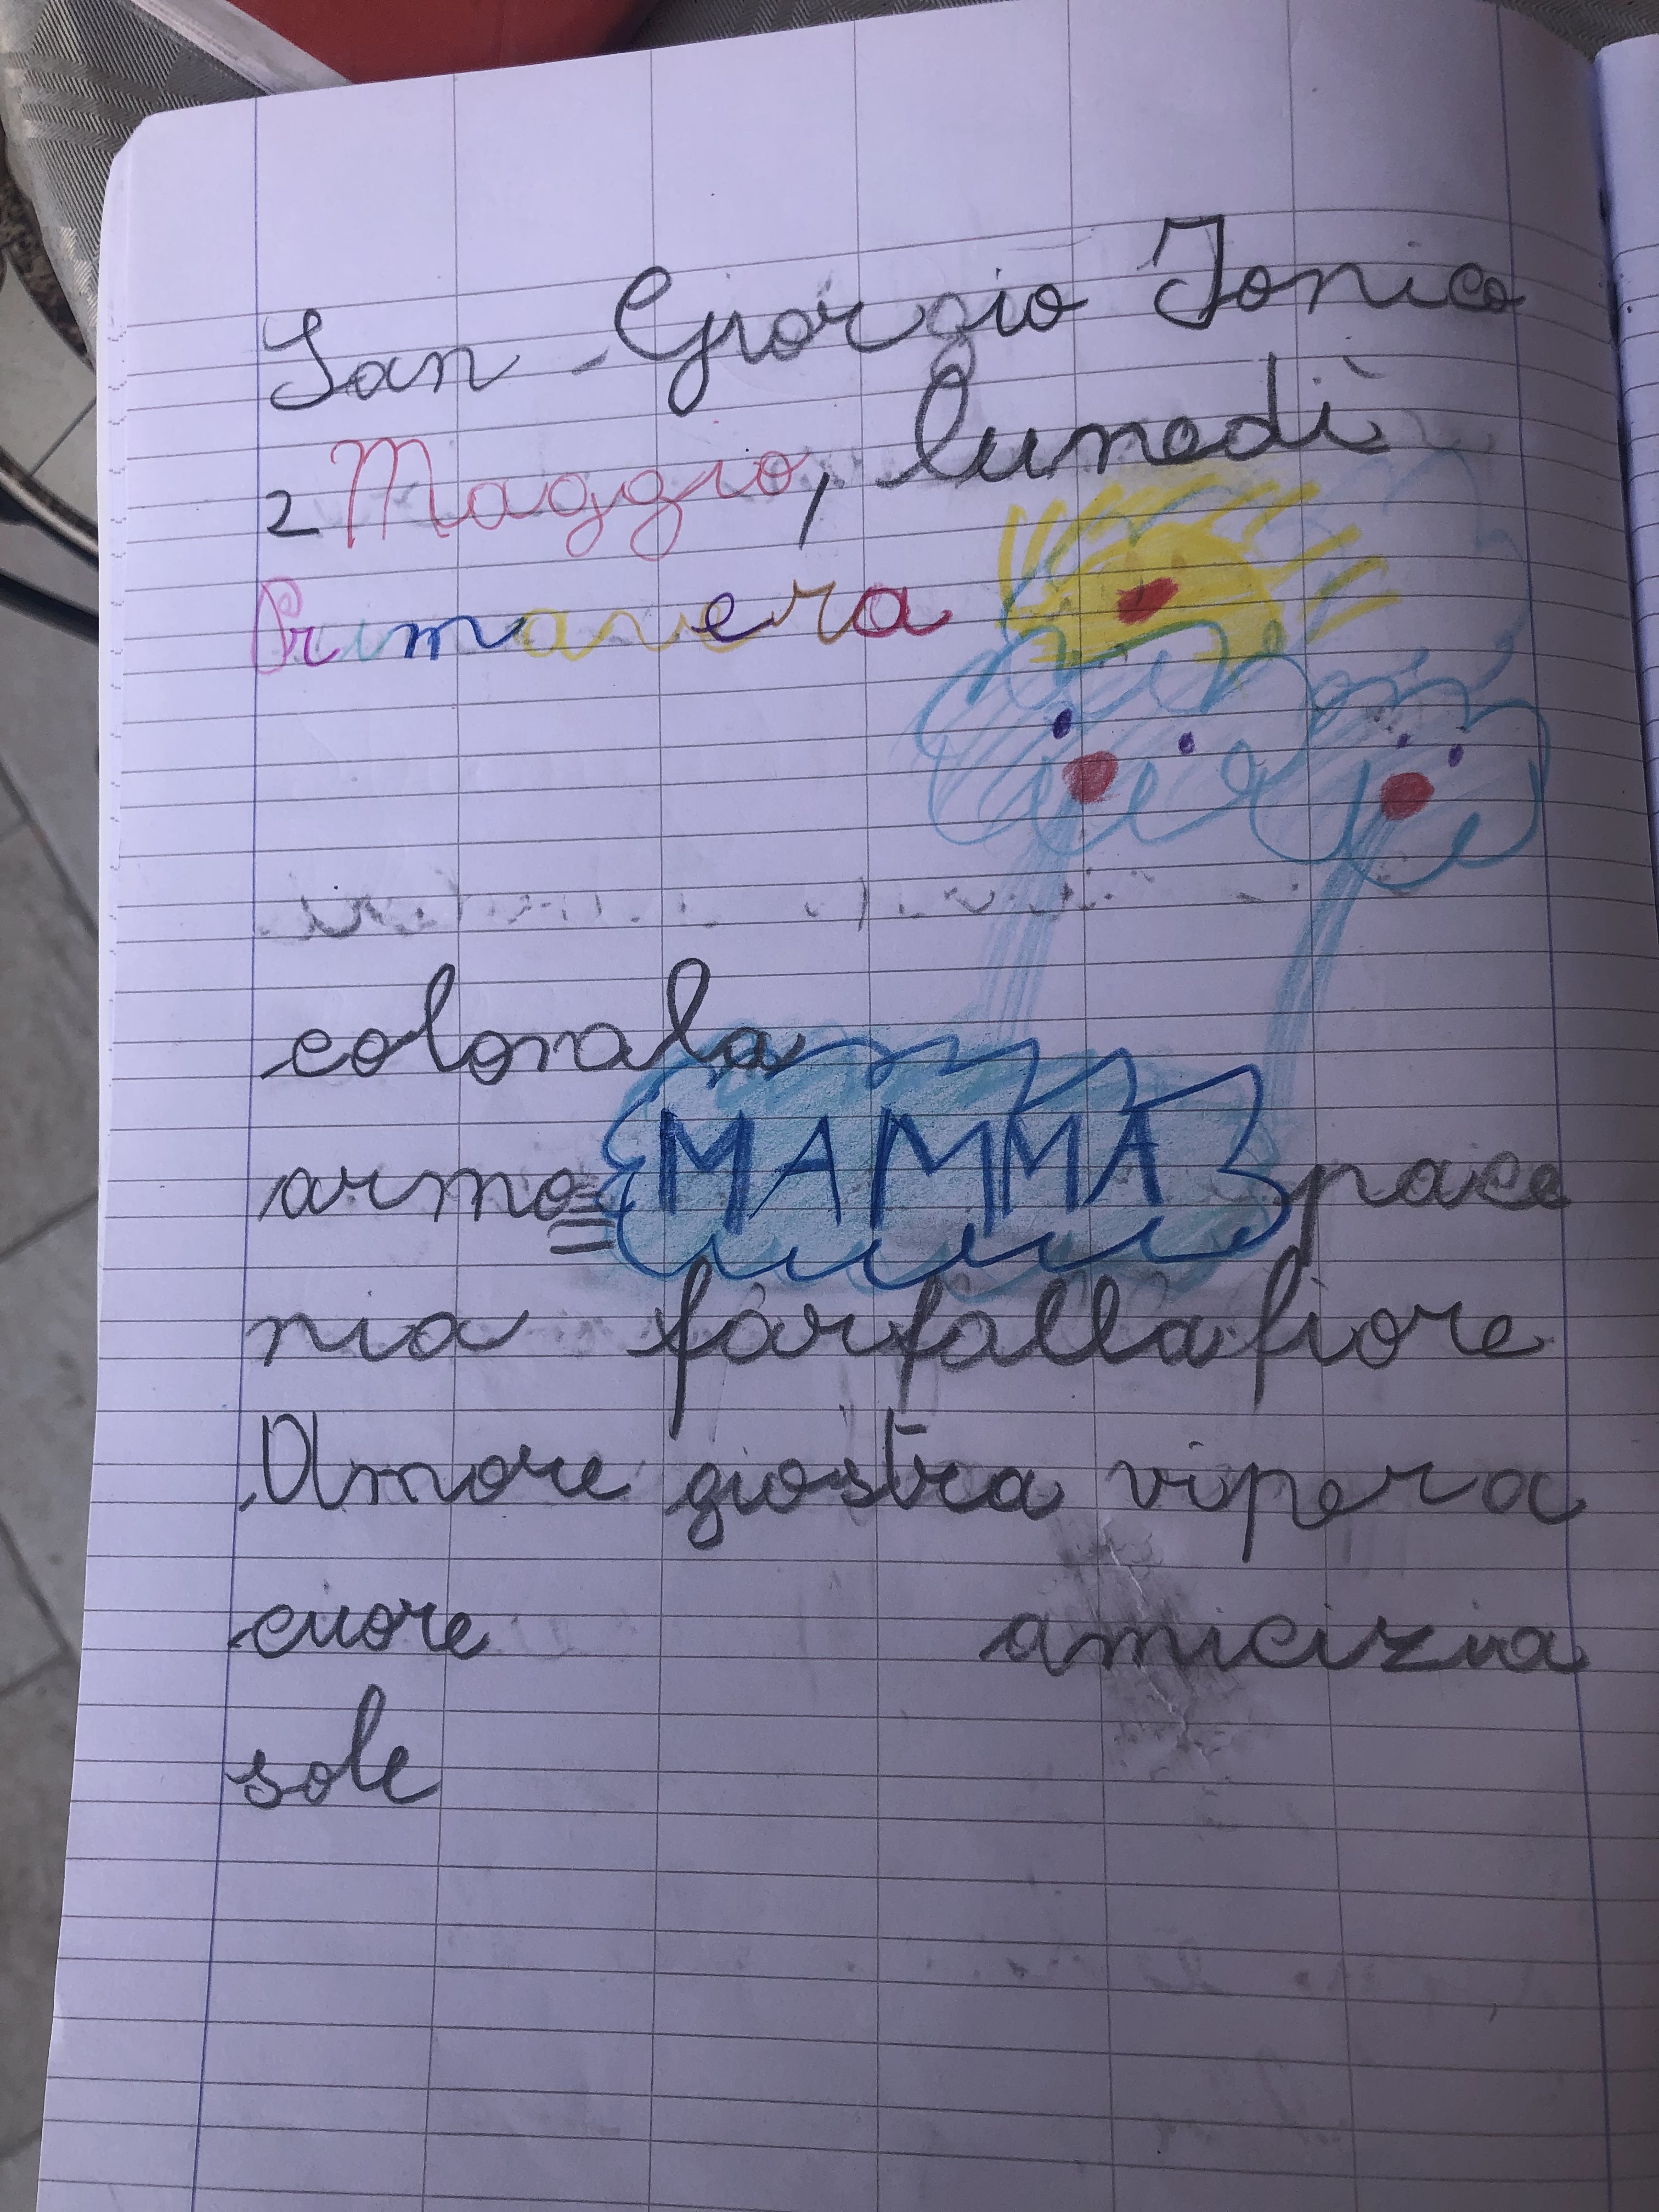 San Giorgio Ionico
2 Maggio, lunedì
Primavera
MAMMA
armo pace
nia farfalla fiore
Amore giostra vipera
cuore amicizia
sole